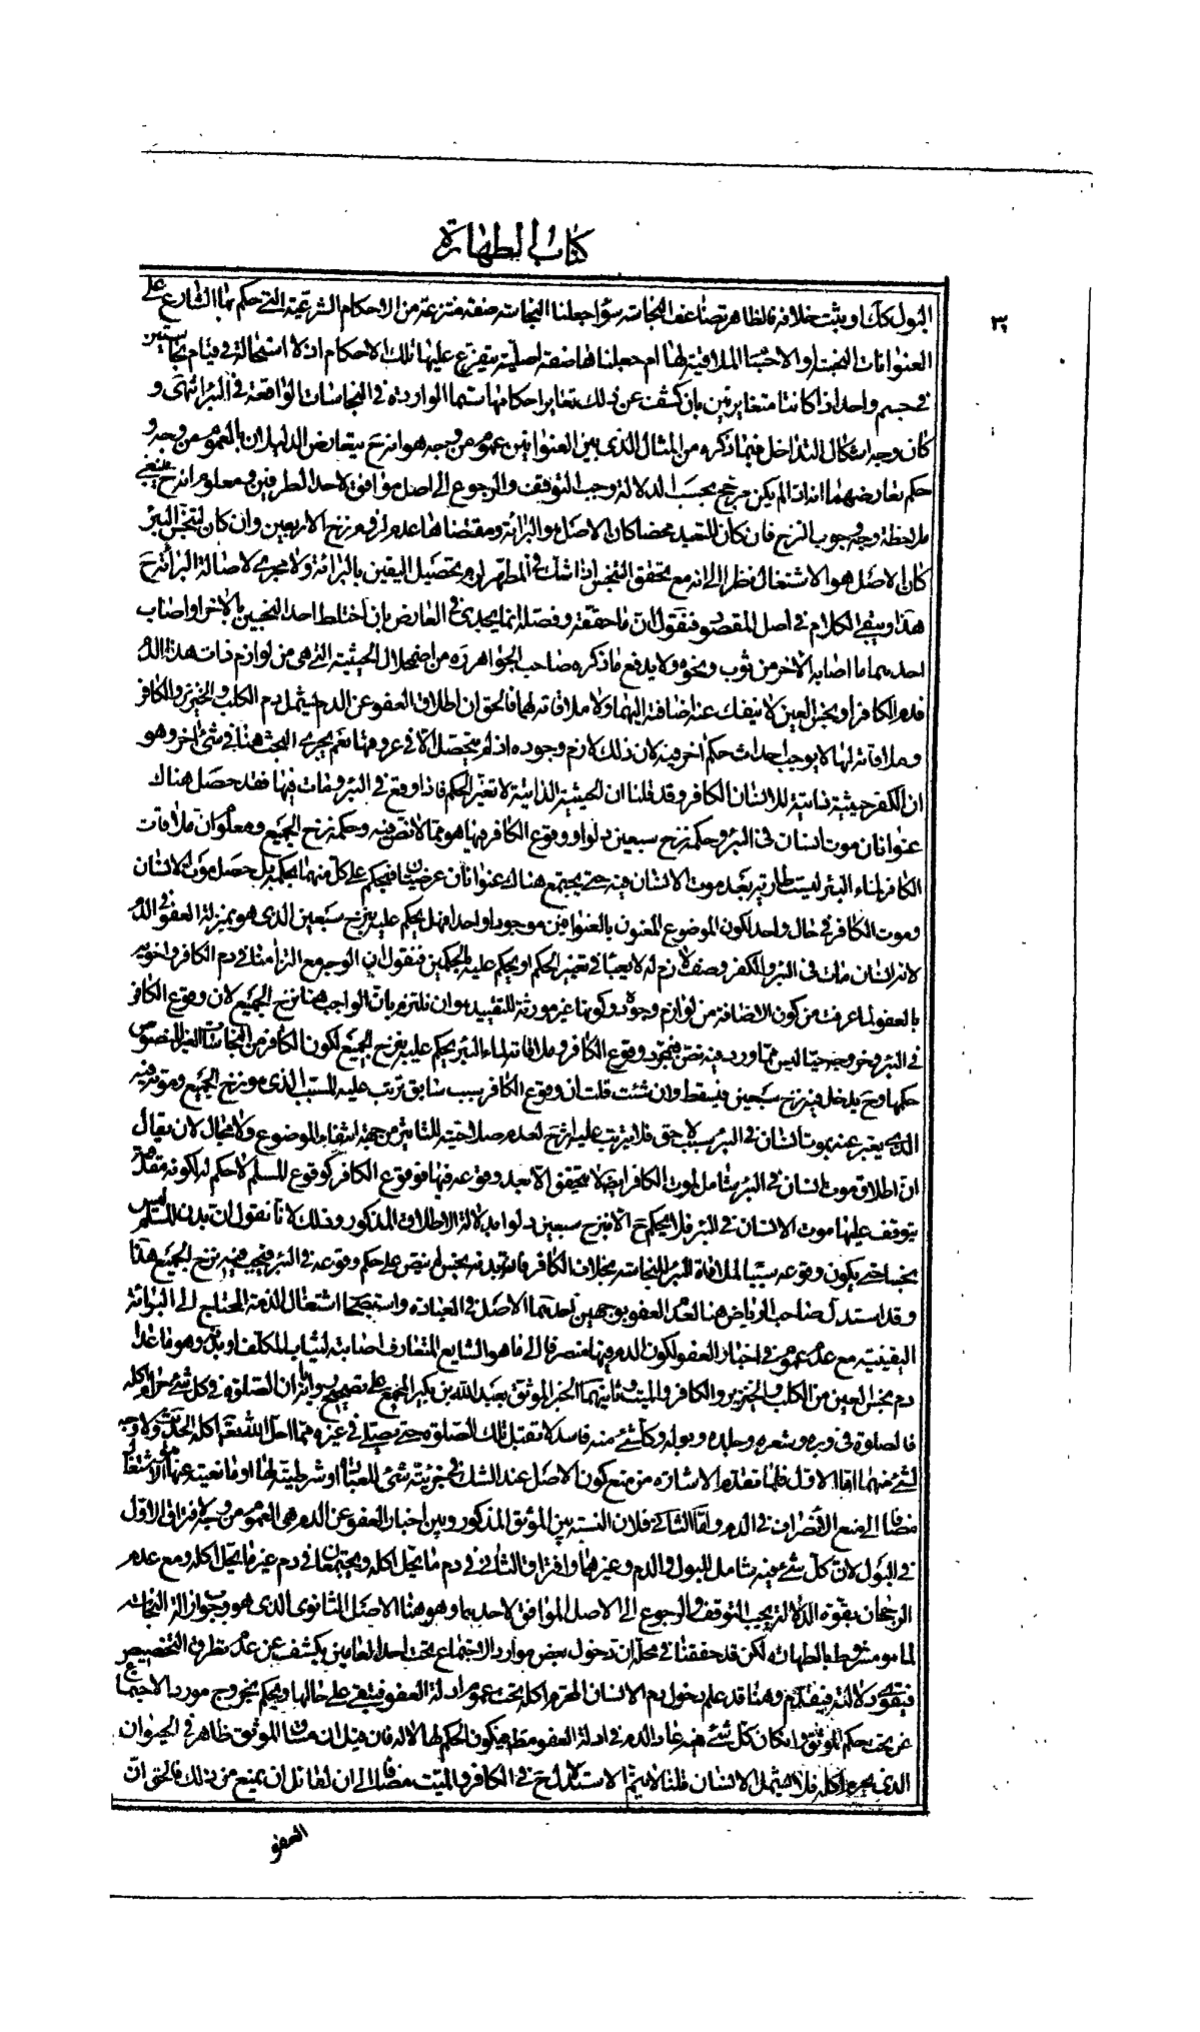 كتاب الطهارة
٣
البول كك او يثبت خلافه فالظاهر تضاعف النجاسة سواء جعلنا النجاسة صفة منتزعة من الاحكام الشرعية التي حكم بها الشارع على
العنوانات النجسة او الاجسام الملاقية لها ام جعلناها صفة اصلية يتفرع عليها تلك الاحكام اذ لا استحالة في قيام نجاستين
في جسم واحد اذا كانتا متغايرتين بان كشف عن ذلك تغاير احكامهما سيما الواردة في النجاسات الواقعة في البئر انتهى و
كان وجه اشكال التداخل فيما ذكره من المثال الذي بين العنوانين عموم من وجه هو انه ح يتعارض الدليلان بالعموم من وجه و
حكم تعارضهما اذا لم يكن مرجح بحسب الدلالة وجب التوقف والرجوع الى اصل موافق لاحد الطرفين ومعلوم انه ح ينبغي
ملاحظة وجه وجوب النزح فان كان للتعبد محضا كان الاصل هو البرائة ومقتضاها عدم لزوم نزح الاربعين وان كان لتنجس البئر
كان الاصل هو الاشتغال نظرا الى انه مع تحقق التنجس اذا شك في المطهر لزم تحصيل اليقين بالبرائة ولا مجرى لاصالة البرائة ح
هذا ويبقى الكلام في اصل المقصود فنقول ان ما حققه وفصله انما يجدى في العارض بان اختلط احد النجسين بالاخر او اصاب
احدهما ما اصابه الاخر من ثوب ونحوه ولا يدفع ما ذكره صاحب الجواهر ره من اضمحلال الحيثية التي هي من لوازم ذات هذا الدم
فدم الكافر او نجس العين لا ينفك عنه اضافته اليهما ولا ملاقاته لهما فالحق ان اطلاق العفو عن الدم يشمل دم الكلب والخنزير والكافر
وملاقاته لها لا يوجب احداث حكم اخر فيه لان ذلك لازم وجوده اذ لم يتحصل الا في عروقها نعم يجرى البحث هنا في شئ اخر وهو
ان الكفر حيثية ذاتية للانسان الكافر وقد قلنا ان الحيثية الذاتية لا تغير الحكم فاذا وقع في البئر ومات فيها فقد حصل هناك
عنوانان موت انسان في البئر وحكمه نزح سبعين دلوا ووقوع الكافر فيها وهو مما لا نص فيه وحكمه نزح الجميع ومعلوم ان ملاقات
الكافر لماء البئر ليست طارية بعد موت الانسان فيه حتى يجتمع هناك عنوانان عرضيان فيحكم على كل منهما بحكمه بل حصل موت الانسان
وموت الكافر في حال واحد لكون الموضوع المعنون بالعنوانين موجودا واحدا فهل يحكم عليه بنزح سبعين الذي هو بمنزلة العفو في الدم
لانه انسان مات في البئر والكفر وصف لازم له لا يعبأ في تغيير الحكم او يحكم عليه بالحكمين فنقول ان الوجه مع التزامنا في دم الكافر واخويه
بالعفو لما عرفت من كون الاضافة من لوازم وجوده وكونها غير مورثة للتقييد هو ان نلتزم بان الواجب هنا نزح الجميع لان وقوع الكافر
في البئر وخروجه حيا ليس مما ورد فيه نص فبمجرد وقوع الكافر وملاقاته لماء البئر يحكم عليه بنزح الجميع لكون الكافر من النجاسات الغير المنصوص
حكمها وح يدخل فيه نزح سبعين فيسقط وان شئت قلت ان وقوع الكافر سبب سابق ترتب عليه المسبب الذي هو نزح الجميع وموته فيه
الذي يعبر عنه بموت انسان في البئر سبب لاحق فلا يترتب عليه نزح لعدم صلاحيته للتاثير من جهة انتفاء الموضوع ولا مجال لان يقال
ان اطلاق موت انسان في البئر شامل لموت الكافر ايضا ولا يتحقق الا بعد وقوعه فيها فوقوع الكافر كوقوع المسلم لا حكم له لكونه مقدمة
يتوقف عليها موت الانسان في البئر فلا يحكم ح الا بنزح سبعين دلوا بدلالة الاطلاق المذكور وذلك لانا نقول ان بدن المسلم ليس
نجسا حتى يكون وقوعه سببا لملاقاة البئر للنجاسة بخلاف الكافر فان بدنه نجس لم ينص على حكم وقوعه في البئر فيجب فيه نزح الجميع هذا
وقد استدل صاحب الرياض هنا لعدم العفو بوجهين احدهما الاصل في العبادة واستصحاب اشتغال الذمة المحتاج الى البرائة
اليقينية مع عدم عموم في اخبار العفو لكون الدم فيها منصرفا الى ما هو الشايع المتعارف اصابته لثياب المكلف او بدنه وهو ما عدا
دم نجس العين من الكلب والخنزير والكافر والميت وثانيهما الخبر الموثق بعبد الله بن بكير المجمع على تصحيح رواياته ان الصلوة في كل شئ حرام اكله
فالصلوة في وبره وشعره وجلده وبوله وكل شئ منه فاسد لا تقبل تلك الصلوة حتى يصلى في غيره مما احل الله تعالى اكله الحديث ولا وجه
لشئ منهما اما الاول فلما تقدم الاشارة من منع كون الاصل عند الشك في جزئية شئ للعبادة او شرطيته لها او مانعيته عنها هو الاشتغال
مضافا الى منع الانصراف في الدم واما الثاني فلان النسبة بين الموثق المذكور وبين اخبار العفو عن الدم هي العموم من وجه لافتراق الاول
في البول لان كل شئ فيه شامل للبول والدم وغيرهما وافتراق الثاني في دم ما يحل اكله ويجتمعان في دم غير ما يحل اكله ومع عدم
الرجحان بقوة الدلالة يجب التوقف والرجوع الى الاصل الموافق لاحدهما وهو هنا الاصل الثانوى الذي هو وجوب ازالة النجاسة
لما هو مشروط بالطهارة لكن قد حققنا في محله ان دخول بعض موارد الاجتماع تحت احد العامين يكشف عن عدم تطرق التخصيص
فيقوى دلالته فيقدم وهنا قد علم دخول دم الانسان المحرم اكله تحت عموم ادلة العفو فيبقى على حالها ويحكم بخروج مورد الاجتماع
عن تحت حكم الموثق وان كان كل شئ منه غير الدم في ادلة العفو مط فيكون الحكم لها لا له فان قيل ان مساق الموثق ظاهر في الحيوان
الذي يحرم اكله فلا يشمل الانسان قلنا لا يتم الاستدلال ح في الكافر والميت مضافا الى ان لقائل ان يمنع من ذلك فالحق ان
العفو